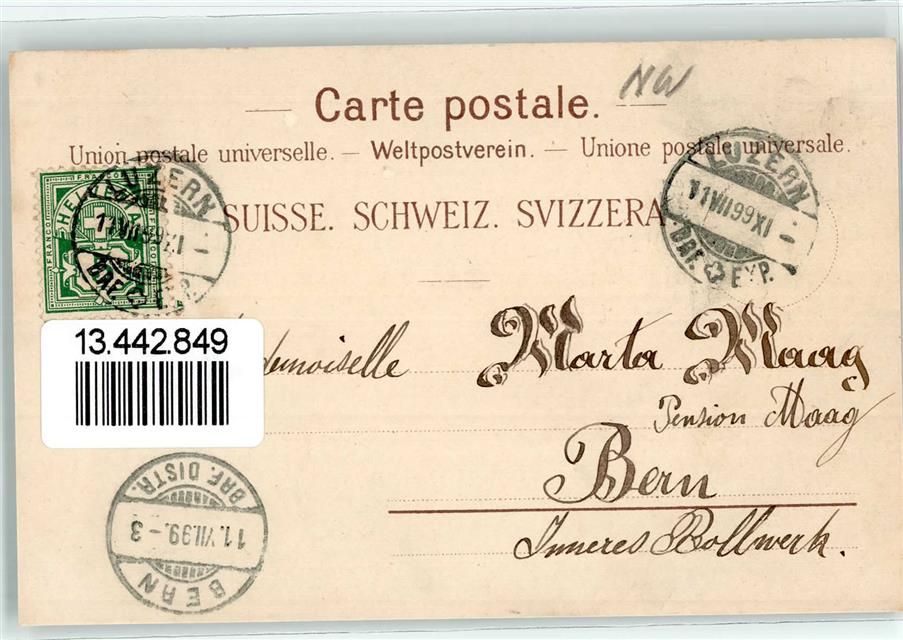 NW
Carte postale.
Union postale universelle. — Weltpostverein. — Unione postale universale.
SUISSE. SCHWEIZ. SVIZZERA.
FRANCO
HELVETIA
FRANCO
LUZERN
11 VII 99 XI
BRF. EXP.
LUZERN
11 VII 99 XI
BRF. EXP.
13.442.849
demoiselle Marta Maag
Pension Maag
Bern
Inneres Bollwerk.
BRF. DISTR.
11. VII. 99. - 3
BERN